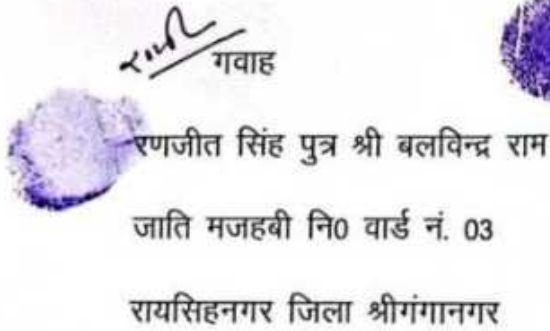 गवाह
रणजीत सिंह पुत्र श्री बलविन्द्र राम
जाति मजहबी नि0 वार्ड नं. 03
रायसिहनगर जिला श्रीगंगानगर